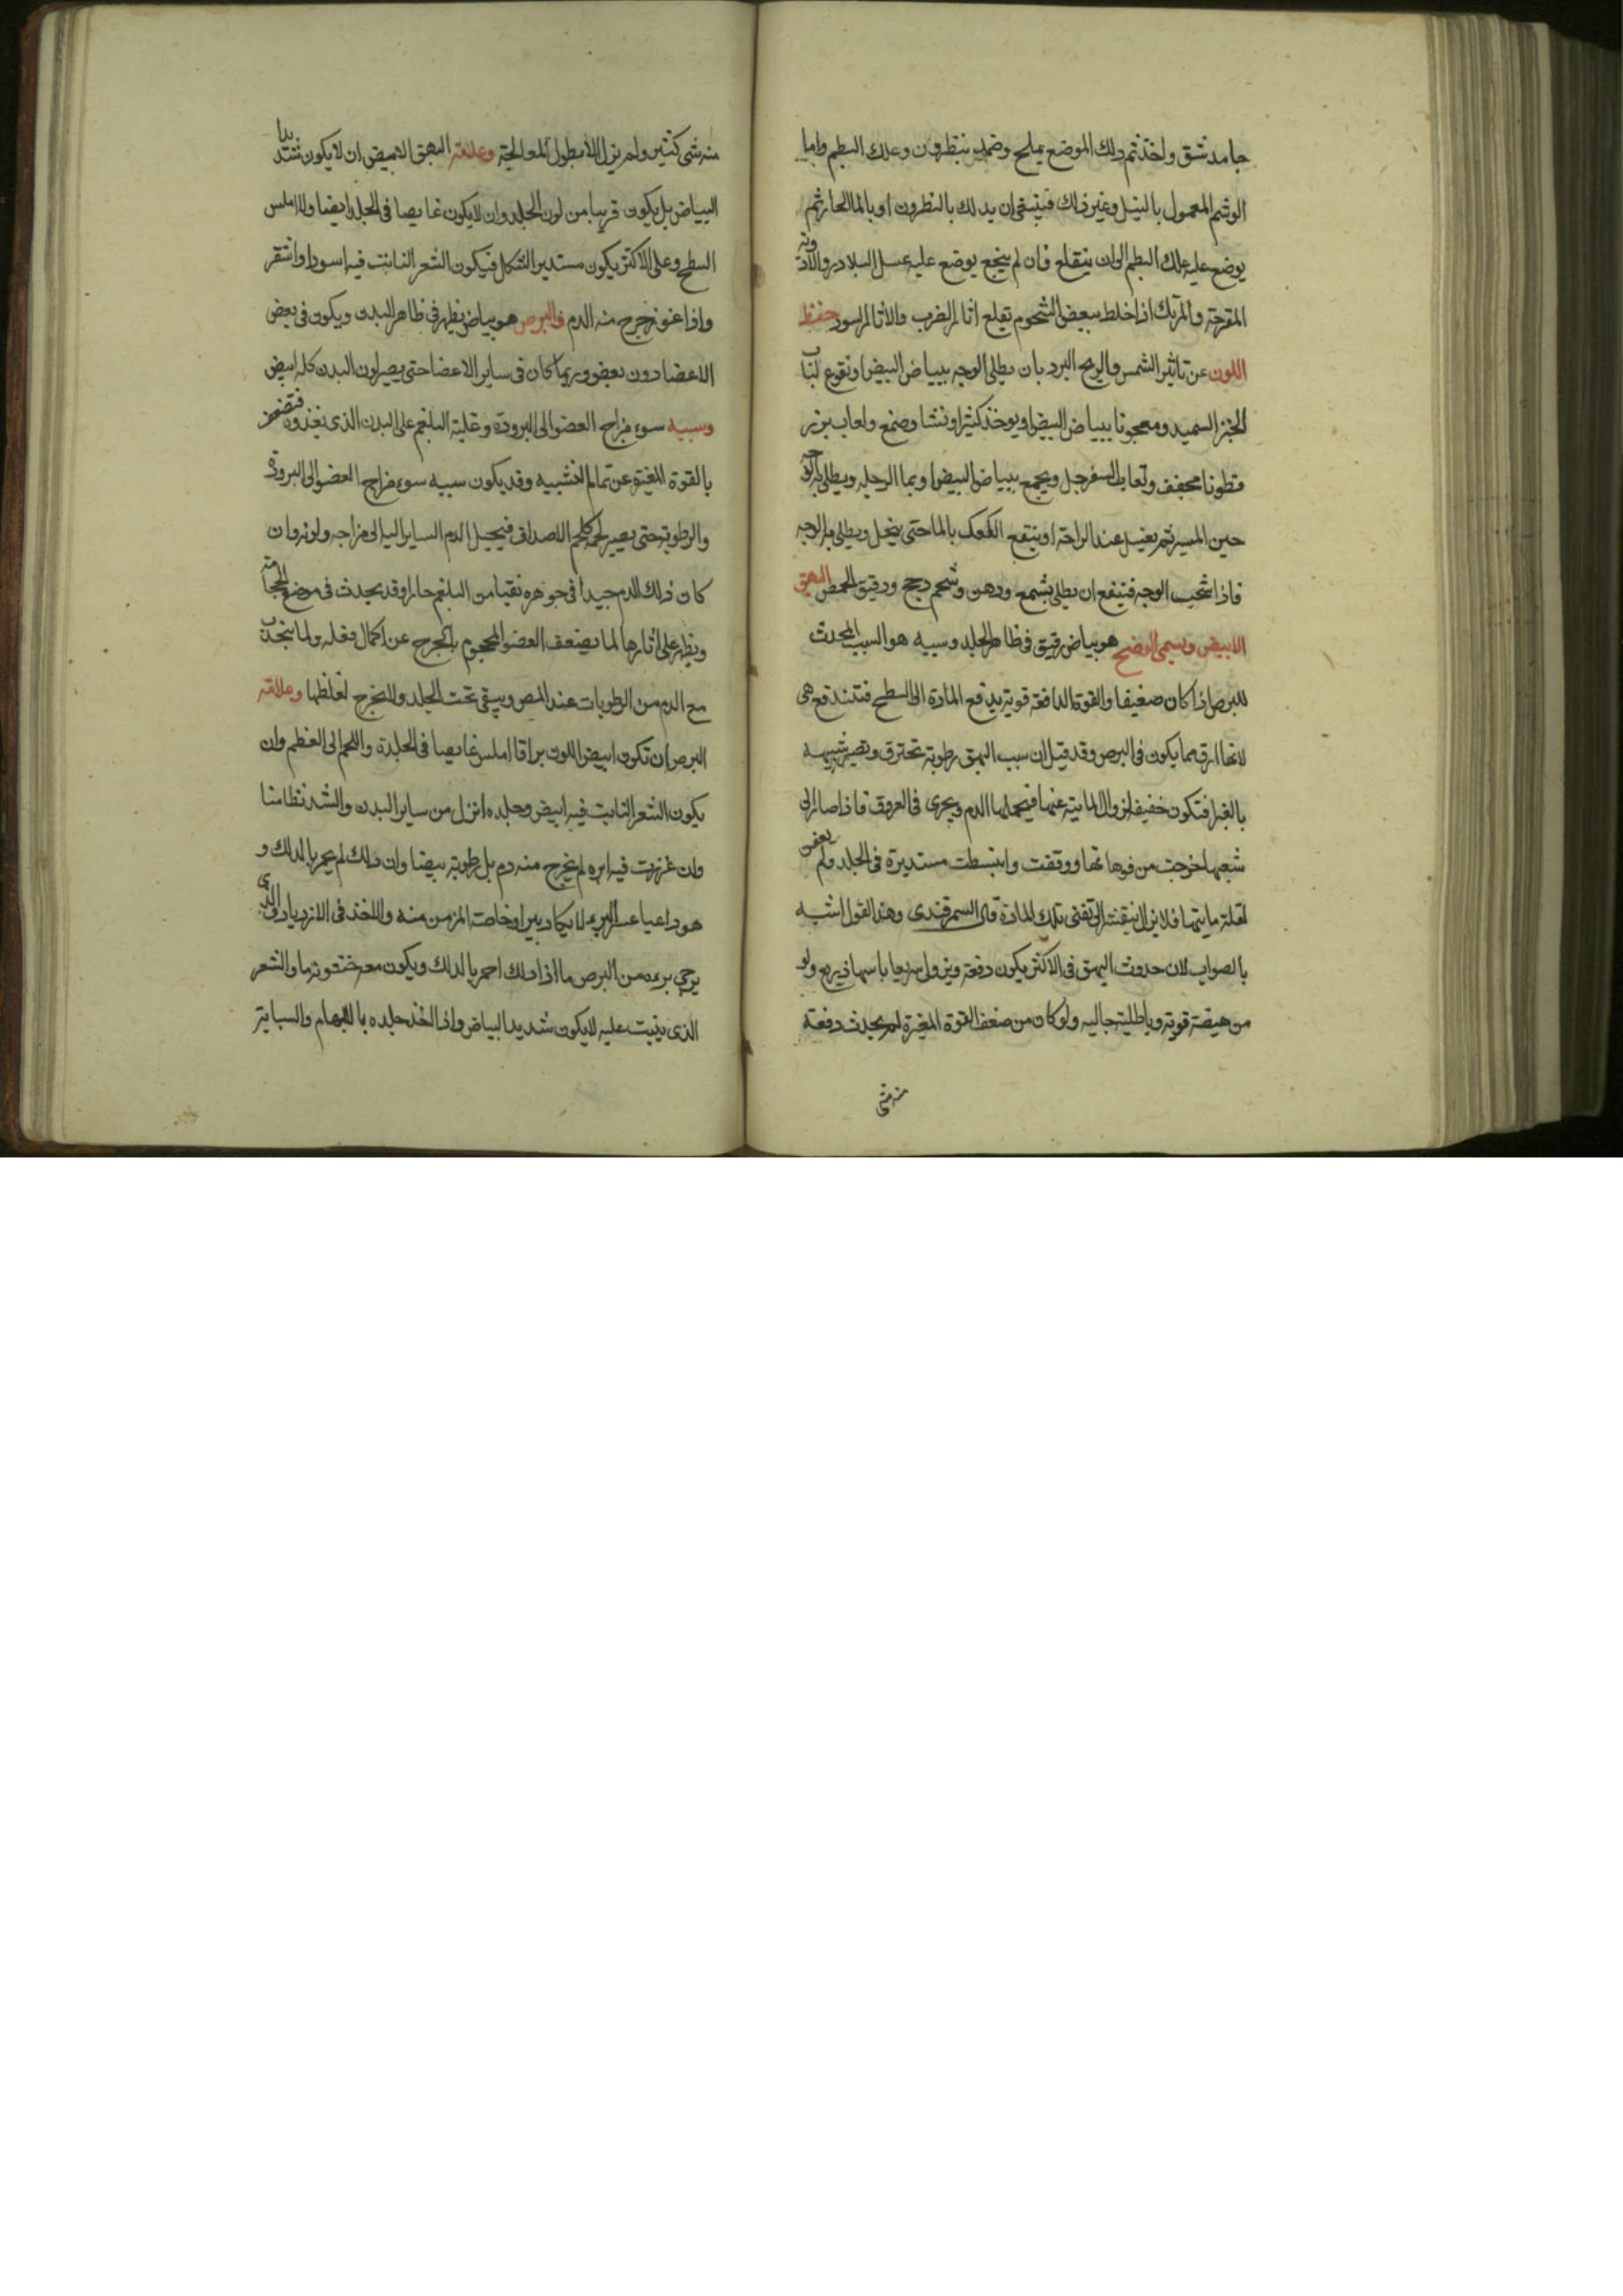 جامد شق واخذ ثم دلك الموضع بملح وضمد بنطرون وعلك البطم واما
الوشم المعمول بالنيل وغير ذلك فينبغي ان يدلك بالنطرون او بالماالحار ثم
يوضع عليه علك البطم الى ان ينقلع فان لم ينجع يوضع عليه عسل البلادر والادوية
المقرحة والمرتك اذا خلط ببعض الشحوم تقلع اثار الضرب والاثار السود حفظ
اللون عن تاثير الشمس والريح البرد بان يطلى الوجه ببياض البيض او نقوع لباب
الخبز السميد ومعجونا ببياض البيض او يوخذ كثيرا ونشا وصمغ ولعاب بزر
قطونا مجفف ولعاب السفرجل ويجمع ببياض البيض او بما الرجله ويطلى به الوجه
حين المسير ثم يغسل عند الراحة او ينقع الكعك بالما حتى ينحل ويطلى به الوجه
فاذا شحب الوجه فينفع ان يطلى بشمع ودهن وشحم دجج ودقيق الحمص البهق
الابيض ويسمى الوضح هو بياض رقيق في ظاهر الجلد وسببه هو السبب المحدث
للبرص اذا كان ضعيفا والقوة الدافعة قوية يدفع المادة الى السطح فتندفع هي
لانها ارق مما يكون في البرص وقد قيل ان سبب البهق رطوبة تحترق وتصير شبيهه
بالغبار فتكون خفيفة لزوال المايية عنها فيحملها الدم ويجرى في العروق فاذا صار الى
شعبها خرجت من فوهاتها ووقفت وانبسطت مستديرة في الجلد ولم يعفن
لقلة مايتها فلا يزال الى تفنى تلك المادة قال السمرقندى وهذا القول اشبه
بالصواب لان حدوث البهق في الاكثر يكون دفعة ويزول سريعا باسهال ذريع ولو
من هيضة قوية وباطلية جاليه ولو كان من ضعف القوة المغيرة لم يحدث دفعة
منه شى
منه شى كثير ولم يزل الا بطول المعالجة وعلامة البهق الابيض ان لا يكون شديد
البياض بل يكون قريبا من لون الجلد وان لا يكون غايصا في الجلد ايضا ولا املس
السطح وعلى الاكثر يكون مستدير الشكل فيكون الشعر النابت فيه اسود او اشقر
واذا غرز خرج منه الدم والبرص هو بياض يظهر في ظاهر البدن ويكون في بعض
الاعضا دون بعض وربما كان في ساير الاعضا حتى يصير لون البدن كله ابيض
وسببه سوء مزاج العضو الى البرودة وغلبة البلغم على البدن الذى يغذوه فتضعف
بالقوة المغيرة عن تمام التشبيه وقد يكون سببه سوء مزاج العضو الى البرودة
والرطوبة حتى يصير لحمه كلحم الاصداف فيحيل الدم الساير اليه الى مزاجه ولونه وان
كان ذلك الدم جيدا في جوهره نقيا من البلغم حارا وقد يحدث في موضع الحجامة
ويظهر على اثارها لما يضعف العضو المحجوم بالجرح عن اكمال فعله ولما ينجذب
مع الدم من الرطوبات عند المص ويبقى تحت الجلد ولا يخرج لغلظها وعلامة
البرص ان تكون ابيض اللون براقا املس غايصا في الجلدة واللحم الى العظم وان
يكون الشعر النابت فيه ابيض وجلده انزل من ساير البدن واشد تطامنا
وان غرزت فيه ابره لم يخرج منه دم بل رطوبة بيضا وان دلك لم يحمر بالدلك و
هو دا عيا عسر البرء لا يكاد يبرا وخاصة المزمن منه والاخذ في الازدياد والذي
يرجى برءه من البرص ما اذا دلك احمر بالدلك ويكون معه خشونة ما والشعر
الذى ينبت عليه لا يكون شديد البياض واذا اخذ جلده بالابهام والسبابة